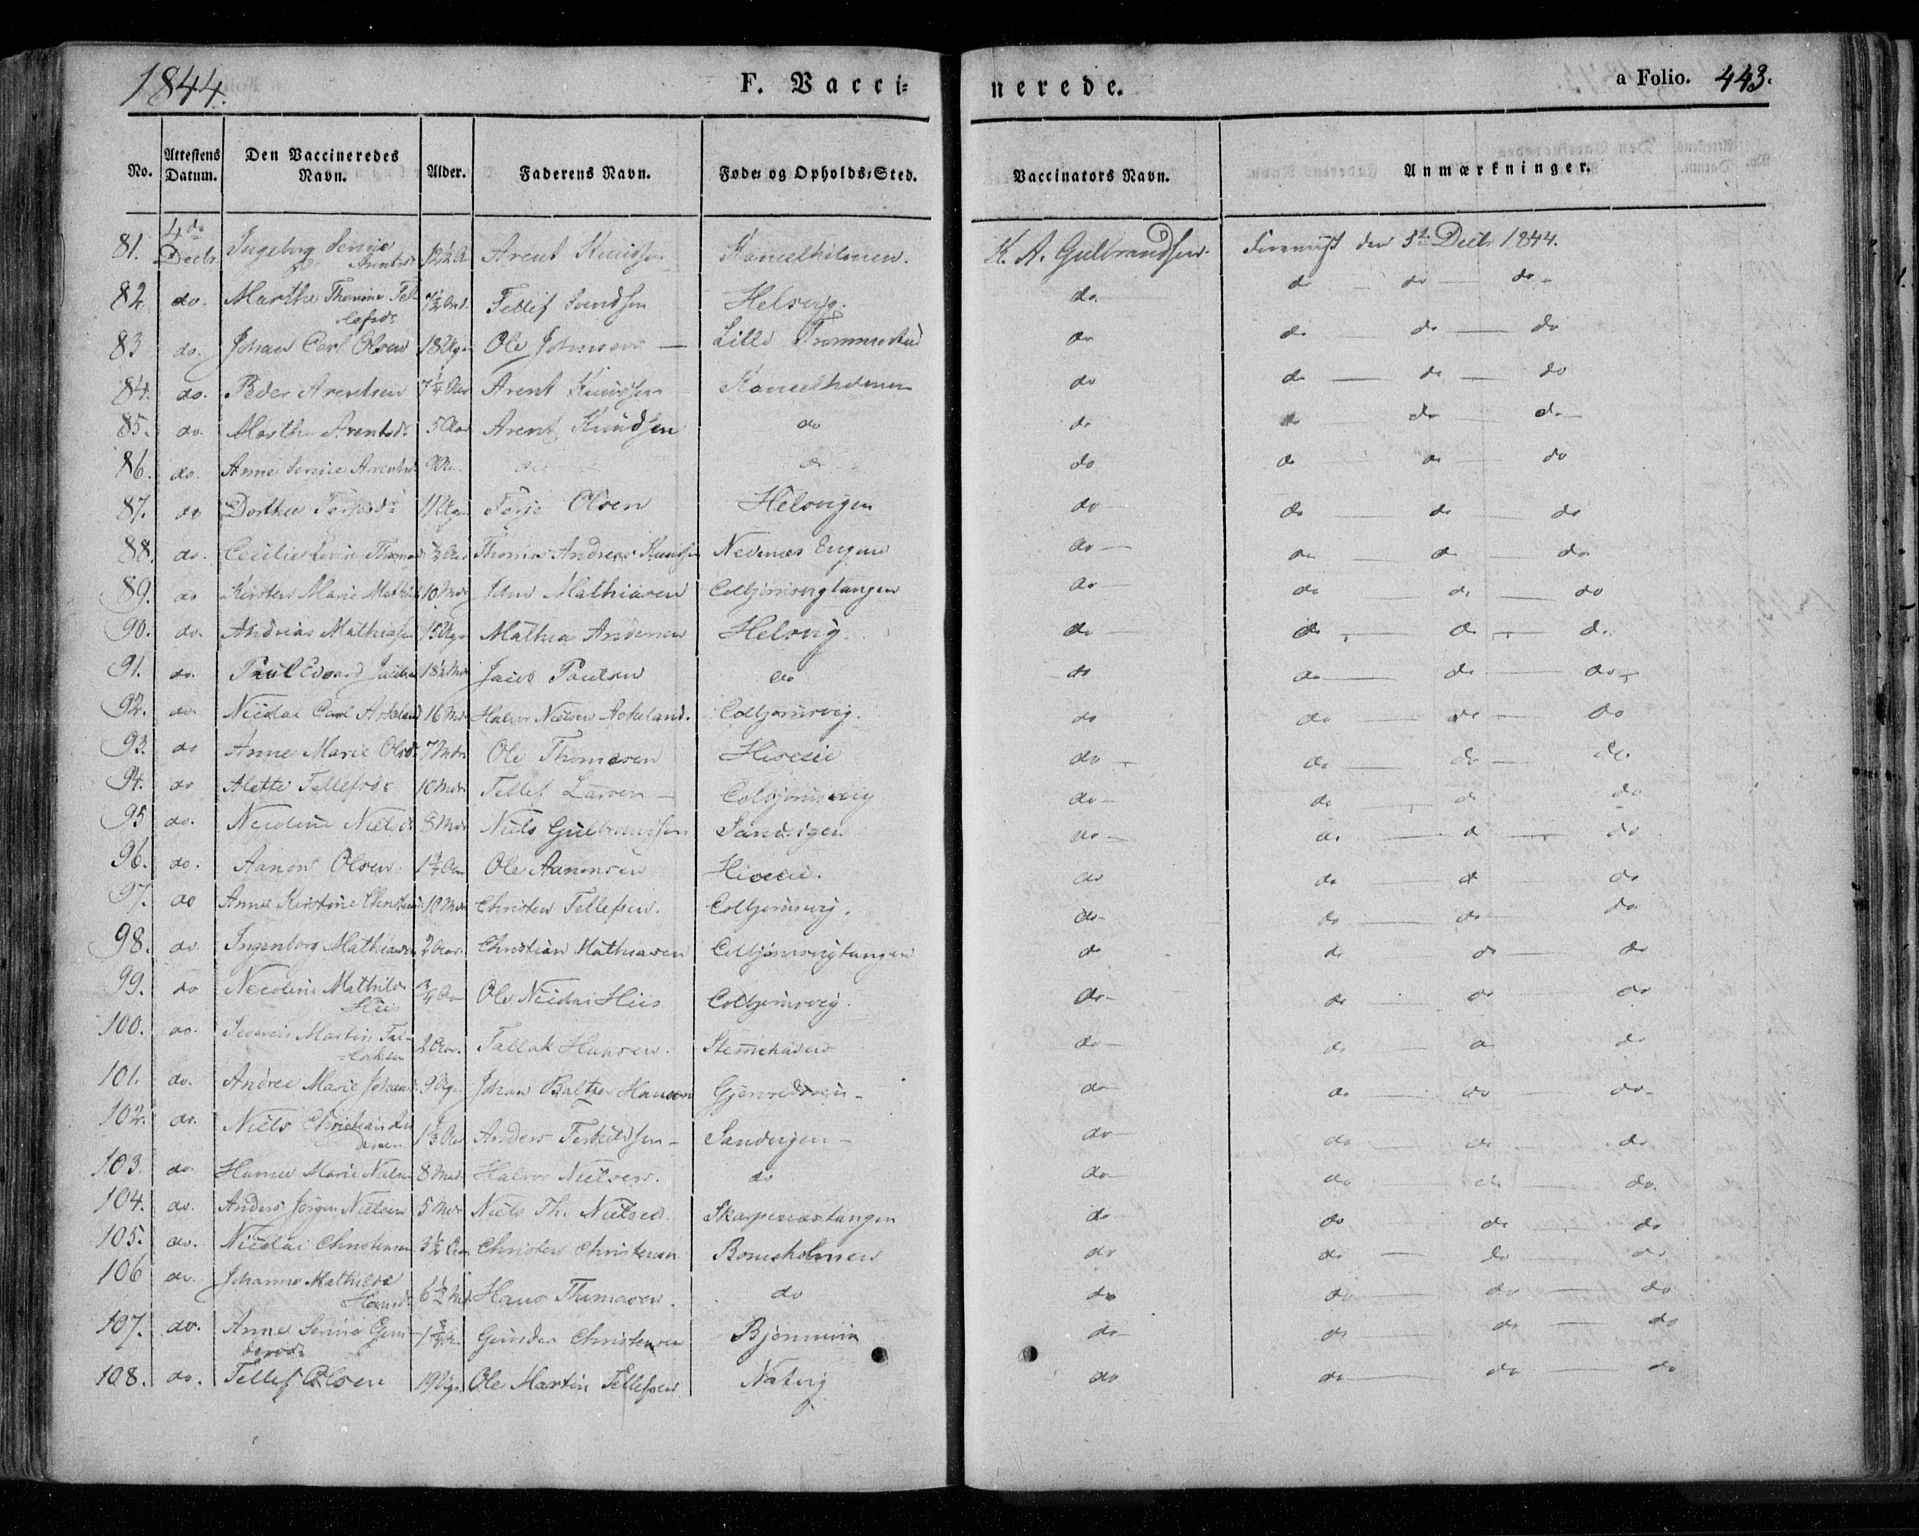 1844. F. Vacci= nerede. a Folio. 443.
No. Attestens Datum. Den Vaccineredes Navn. Alder. Faderens Navn. Føde= og Opholds=Sted. Vaccinators Navn. Anmærkninger.
81. 4de Decbr Ingeborg Serine Arentsd 12½ A Arent Knudsen K. A. Gulbrandsen. Fremvist den 5te Decbr 1844.
82. do. Marthe Thomine Tel
lefsd. 7½ Md. Tellef Svendsen Helsvig. do do do do
83 do. Johan Carl Olsen 18 Uger Ole Johnsen Lille do do do do
84. do. Peder Arentsen 7¼ Aar Arent Knudsen do do do do
85. do. Marthe Arentsd. 5 Aar Arent Knudsen do do do do do
86. do. Anne Serine Arentsd. do do do do do do
87. do Dorthea Terjesd. 11 Uger Terje Olsen Helsvigen do do do do
88. do. Cecilie Thomasd. ½ Aar Thomas Andreas Knudsen Nedenæs Engene do do do do
89. do Kirsten Marie 10 Mdr John Mathiasen Colbjørnsvigtangen do do do do
90. do. Andreas Mathiasen 15 Uger Mathias Andersen Helsvig. do do do do
91. do. Paul Edvard Jacobsen 18½ Mdr Jacob Paulsen do do do do do
92. do. Nicolai Carl Askeland 16 Mdr Halvor Nielsen Askeland. Colbjørnsvig. do do do do
93. do Anne Marie Olsd. 7 Mdr. Ole Thomasen Hisøen do do do do
94. do Alette Tellefsd. 10 Mdr. Tellef Larsen Colbjørnsvig do do do do
95 do. Nicoline Nielsd. 8 Mdr Niels Gulbrandsen Sandvigen do do do do
96. do. Aanon Olsen. Ole Aanonsen Hisøen. do do do do
97. do Anne Kirstine Christensd. 10 Mdr Christen Tellefsen. Colbjørnsvig. do do do do
98. do Ingeborg Mathiasen 2 Aar. Christian Mathiasen Colbjørnsvigtangen do do do do
99. do Nicoline Mathilde
Hiis ¾ Aar Ole Nicolai Hiis Colbjørnsvig. do do do do
100. do. Severin Martin Tal=
=laksen 2 Aar. Tallak Hansen. do do do do
101. do. Andrea Marie Johansd. 9 Uger Johan Balther Hansen do do do do
102. do. Niels Christian An
dersen 1⅓ Aar Anders Terkildsen Sandvigen do do do do
103. do. Hanne Marie Nielsen 8 Mdr. Halvor Nielsen. do do do do do
104. do. Anders Jørgen Nielsen 5 Mdr Niels Th. Nielsen. Skarpenæstangen do do do do
105. do. Nicolai Christensen 3½ Aar Christen Christensen Bomsholmen do do do do
106 do. Johanne Mathilde
Hansd. 6½ Md. Hans Thomasen. do do do do do
107. do. Anne Serine Gun
dersd. 1¾ A. Gunder Christensen do do do do
108. do. Tellef Olsen 19 Uger Ole Martin Tellefsen Natvig do do do do